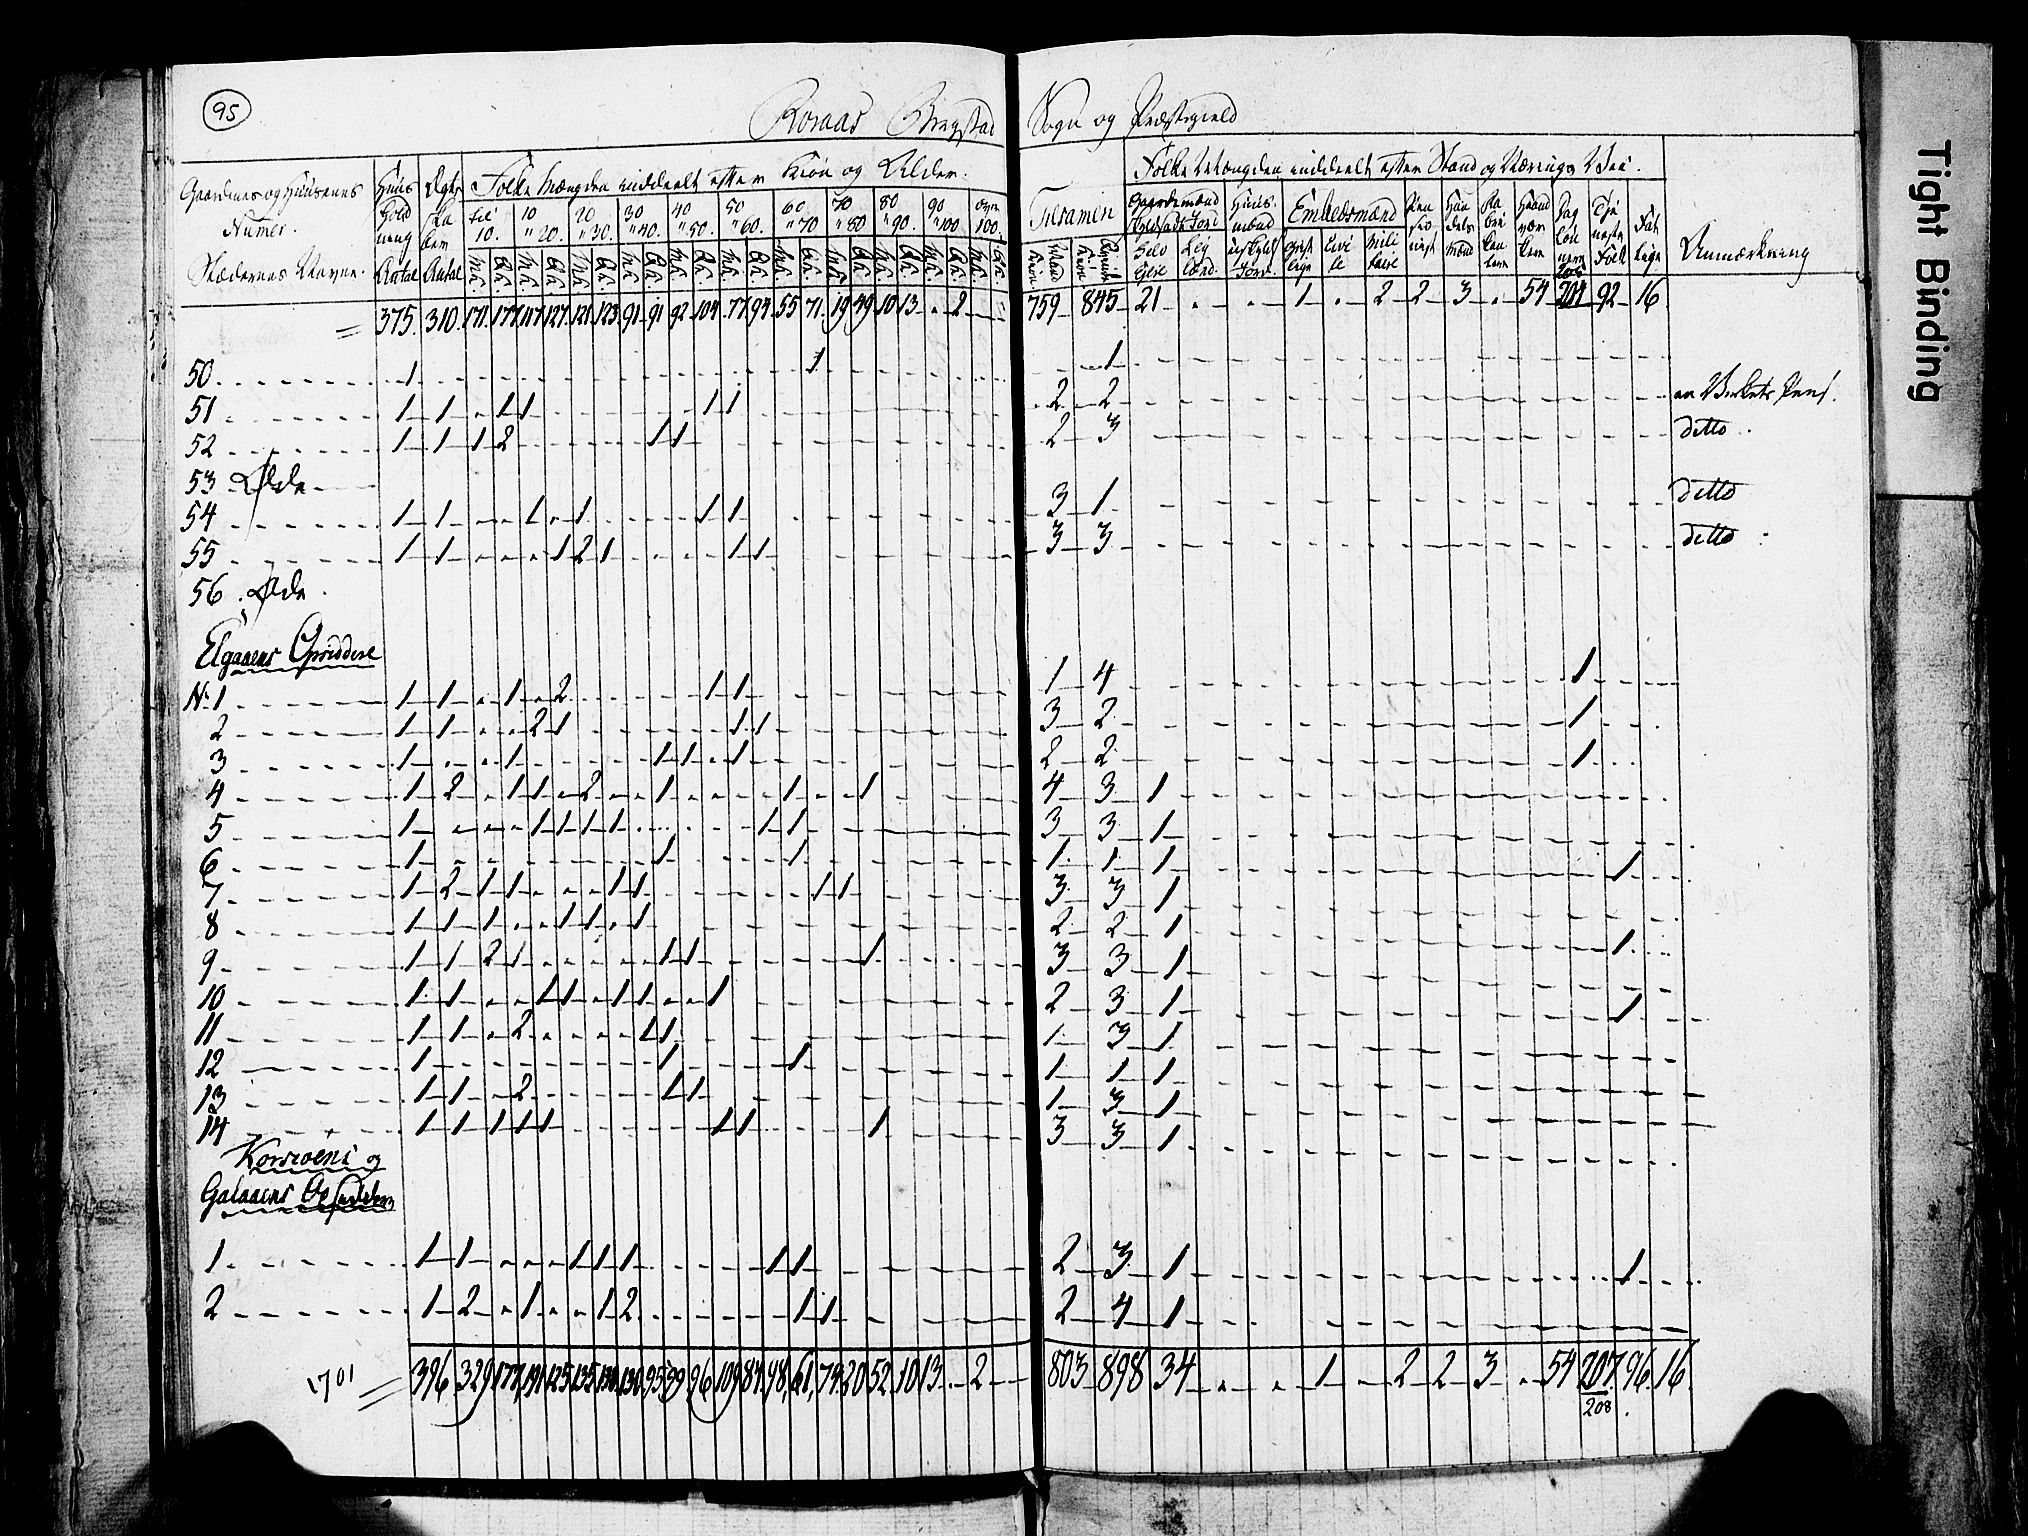 95
Roraas Bergstad Sogn og Præstegield
Gaardenes og Huusenes Numer. Stædernes Navne.
Huus Hold ning Antal
Ægte ska ber Antal
Folke Mængden inddeelt efter Kiøn og Alder.
til 10. 10 " 20. 20 " 30. 30 " 40. 40 " 50. 50 " 60. 60 " 70 70 " 80 80 " 90. 90 " 100 over 100.
M.K. Q.K. M.K. Q.K. M.K. Q.K. M.K. Q.K. M.K. Q.K. M.K. Q.K. M.K. Q.K. M.K. Q.K. M.K. Q.K. M.K. Q.K. M.K. Q.K.
Tilsamen
Folke Mængden inddeelt efter Stand og Nærings Vei.
Embedsmænd
Anmærkning
= 375. 310. 171. 177. 117. 127. 121. 123. 91. 91. 92. 104. 77. 94. 55 71. 19 49 10 13 . 2 — 759 845 21 . . 1 . 2 2 3 . 54 204 92 16
50 1 1 1
51 1 1 1 1 1 1 2 2 an Verkets Pens.
52 1 1 1 2 1 1 2 3 ditto
53 Øde
54 1 1 1 1 1 1 3 1 ditto
55 1 1 1 2 1 1 1 3 3 ditto
56 Øde
Elgaaens Opsiddere
No 1 1 1 1 2 1 1 1 4 1
2 1 1 2 1 1 1 3 2 1
3 1 1 1 1 1 2 2 1
4 1 2 1 1 2 1 1 1 4 3 1
5 1 1 1 1 1 1 1 3 3 1
6 1 1 1 1 1 1 1
7 1 2 1 1 1 1 1 1 3 3 1
8 1 1 1 1 1 1 2 2 1 1
9 1 1 2 1 1 1 1 3 3 1
10 1 1 1 1 1 1 1 2 3 1 1
11 1 1 2 1 1 1 3 1
12 1 1 1 1 1 1
13 1 1 2 1 1 1 3 1
14 1 1 1 1 1 1 1 1 3 3 1
Korsiøens og
Galaaens Opsiddere
1 1 1 1 1 1 1 1 2 3 1 1
2 1 2 1 1 2 1 1 2 4 1
1701 = 396 329 177. 191. 125. 135. 130. 130. 95. 99. 96. 109. 84. 98. 61. 74. 20. 52. 10 13 . 2 — 803 898 34 . . 1 2 2 3 . 54 207 96 16
208
Tight Binding